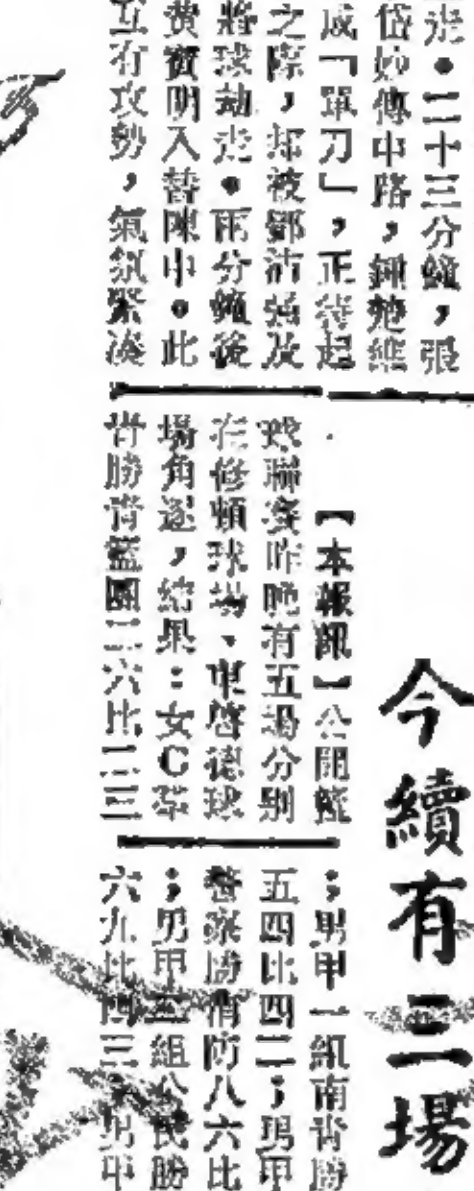 走。二十三分鐘，張
岱妙傳中路，鍾楚維
成「單刀」，正待起
之際，却被鄧沽強及
將球劫走。兩分鐘後
黄寶明入替陳中。此
互有攻勢，氣氛緊湊
今續有三場
【本報訊】公開籃
球聯賽昨晚有五場分別
在修頓球場、東啓德球
場角逐，結果：女C
青勝青籃團二六比二三
；男甲一組南青勝
五四比四二；男甲
警察勝消防八六比
；男甲三組公民勝
六九比四三；男甲